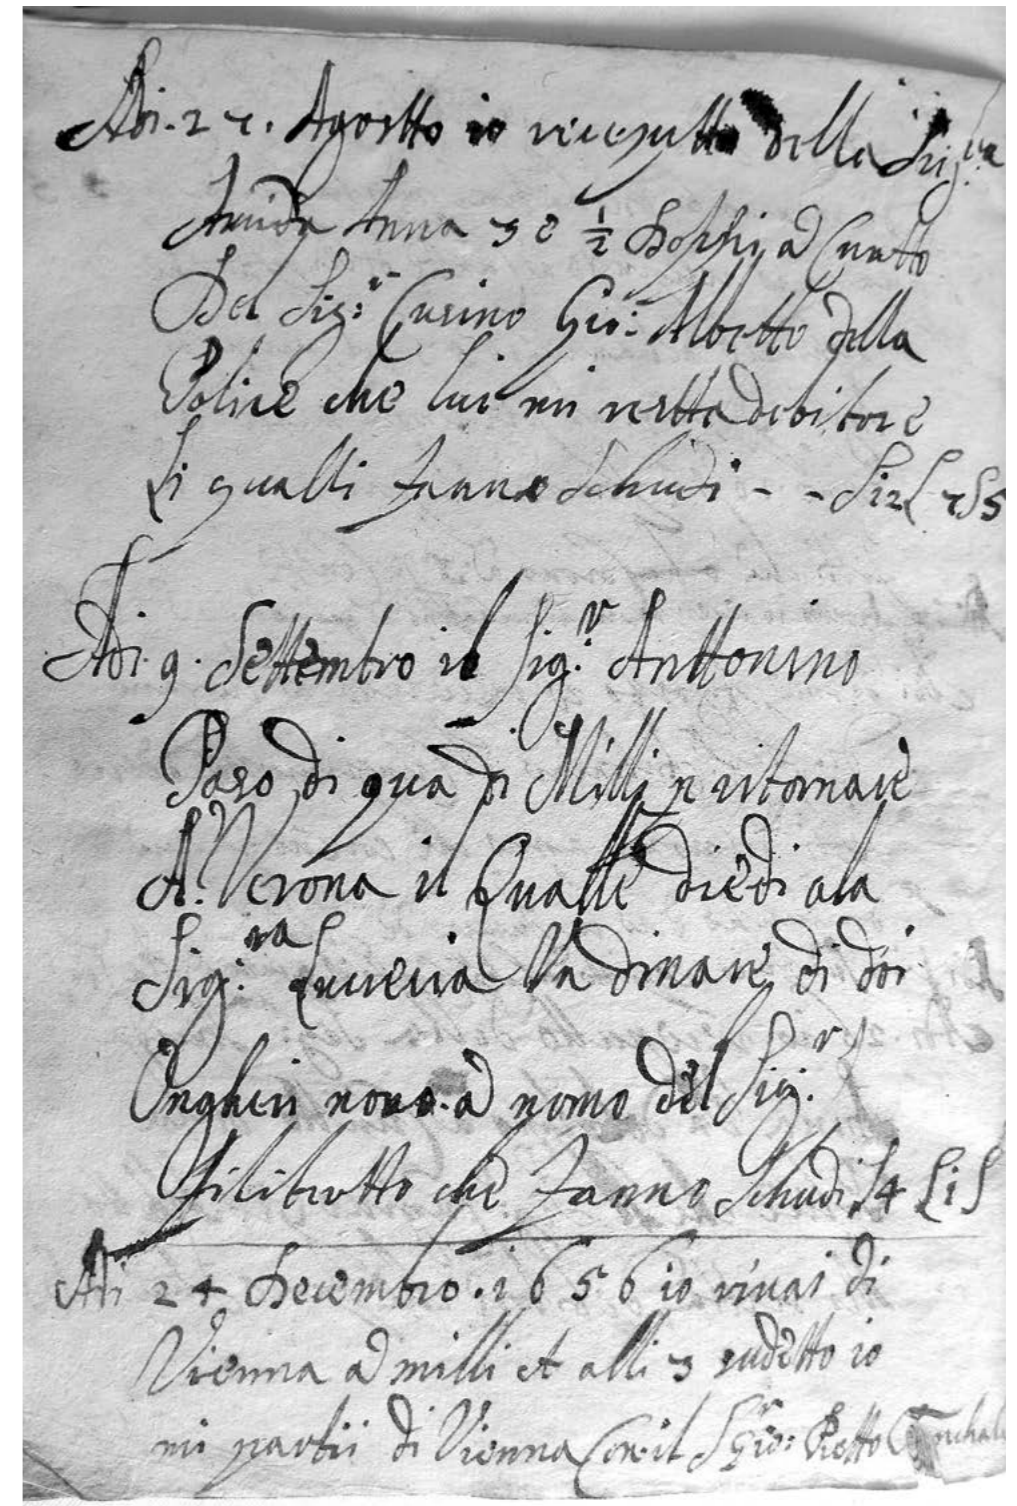 Adi. 27. Agostto io receputto della Sig.ra
Anna 30 ½ a Contto
Del Sig:r Cusino Gio: Albetto della
Police che lui mi restta debitore
Li qualli fanno Schudi - -
Adi. 9. Settembro il Sig:r Anttonino
Paso di qua di Milli p ritornare
A. Verona il Qualle diedi ala
Sig:ra Lucrecia Un dinare di doi
Ongheri novo. a nomo del Sig:r
Filibertto che fanno Schudi S4 L1 S
Adi 24 Decembro. 1656 io rivai di
Vienna a milli et alli 3 sudetto io
mi partii di Vienna Con. il Sr Gio: Pietto